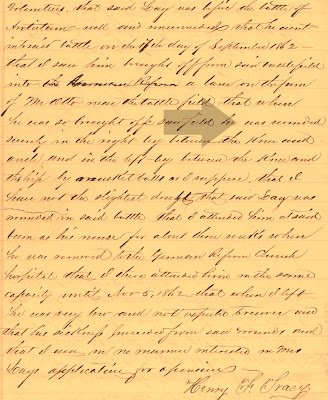 Volunteers, that said Day was before the battle of
Antietam well and uninjured that he went
into said battle on the 17th day of September 1862
that I saw him brought off from said battlefield
into a barn on the farm
of Mr Otto near the battle field that when
he was so brought off said field he was wounded
severely in the right leg between the knee and
ancle and in the left leg between the knee and
the hip by musket balls as I suppose, that I
have not the slightest doubt that said Day was
wounded in said battle that I attended him at said
barn as his nurse for about three weeks when
he was removed to the German Reform Church
hospital that I there attended him in the same
capacity until Nov 5, 1862 that when I left
he was very low and not expected to recover and
that his sickness proceeded from said wounds and
that I am in no manner interested in Mrs
Days application for a pension
Henry F. Tracy